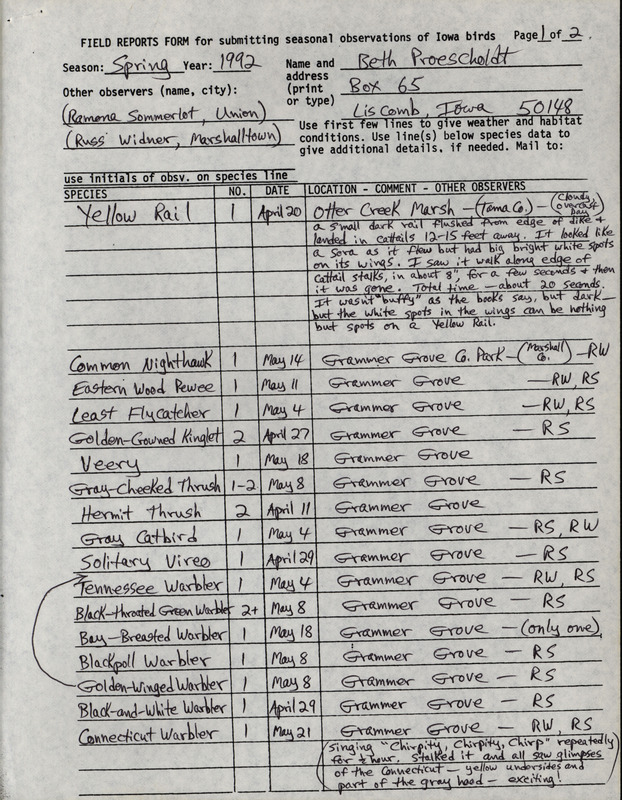 FIELD REPORTS FORM for submitting seasonal observations of Iowa birds Page 1 of 2.
Season: Spring Year: 1992 Name and address (print or type) Beth Proescholdt
Box 65
Liscomb, Iowa 50148
Other observers (name, city):
(Ramona Sommerlot, Union)
(Russ Widner, Marshalltown)
Use first few lines to give weather and habitat
conditions. Use line(s) below species data to
give additional details, if needed. Mail to:
use initials of obsv. on species line
SPECIES NO. DATE LOCATION - COMMENT - OTHER OBSERVERS
Yellow Rail 1 April 20 Otter Creek Marsh - (Tama Co.) - (Cloudy overcast Day)
a small dark rail flushed from edge of dike &
landed in cattails 12-15 feet away. It looked like
a sora as it flew but had big bright white spots
on its wings. I saw it walk along edge of
cattail stalks, in about 8", for a few seconds & then
it was gone. Total time - about 20 seconds.
It wasn't "buffy" as the books say, but dark -
but the white spots in the wings can be nothing
but spots on a Yellow Rail.
Common Nighthawk 1 May 14 Grammer Grove Co. Park - (Marshall Co.) - RW
Eastern Wood Pewee 1 May 11 Grammer Grove - RW, RS
Least Flycatcher 1 May 4 Grammer Grove - RW, RS
Golden-Crowned Kinglet 2 April 27 Grammer Grove - RS
Veery 1 May 18 Grammer Grove
Gray-Cheeked Thrush 1-2 May 8 Grammer Grove - RS
Hermit Thrush 2 April 11 Grammer Grove
Gray Catbird 1 May 4 Grammer Grove - RS, RW
Solitary Vireo 1 April 29 Grammer Grove - RS
Tennessee Warbler 1 May 4 Grammer Grove - RW, RS
Black-throated Green Warbler 2+ May 8 Grammer Grove - RS
Bay-Breasted Warbler 1 May 18 Grammer Grove - (only one)
Blackpoll Warbler 1 May 8 Grammer Grove - RS
Golden-Winged Warbler 1 May 8 Grammer Grove - RS
Black-and-White Warbler 1 April 29 Grammer Grove - RS
Connecticut Warbler 1 May 21 Grammer Grove - RW RS
(singing "Chirpity, Chirpity, Chirp" repeatedly
for ½ hour. Stalked it and all saw glimpses
of the Connecticut - yellow undersides and
part of the gray hood - exciting!)